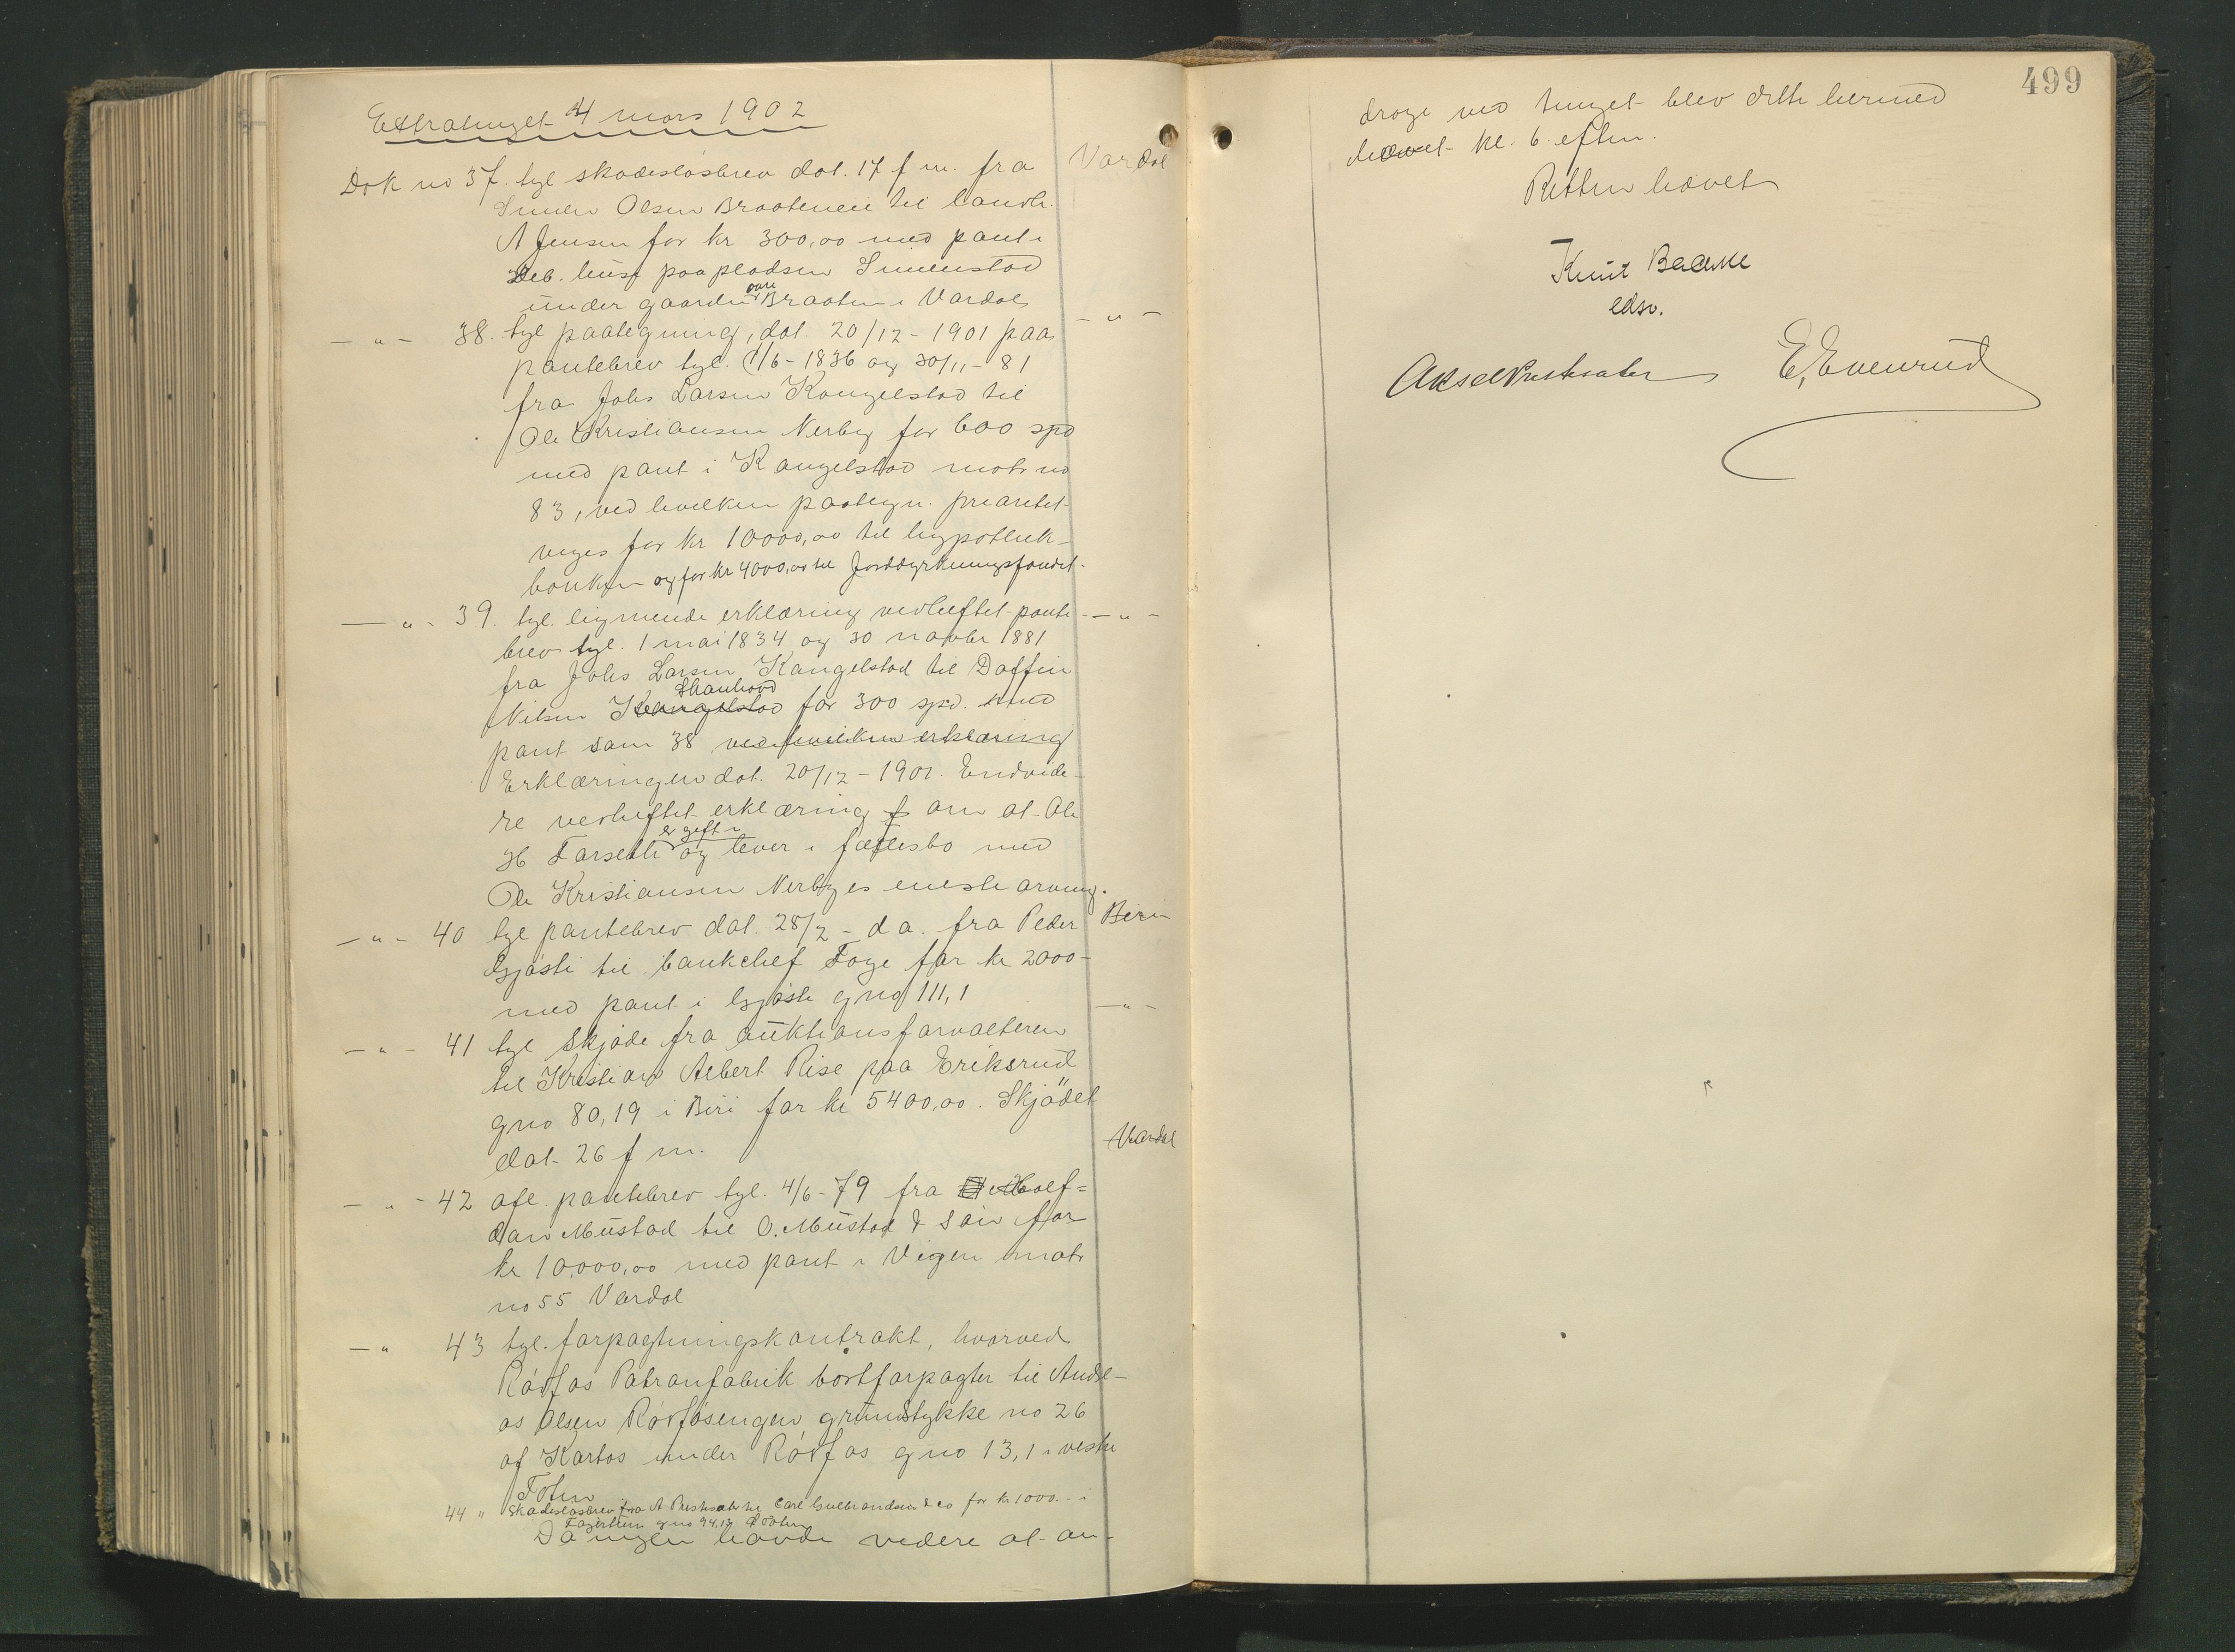 Extratinget 4 mars 1902
Dok no 37. tgl skadeslösbrev dat. 17 f m. fra Vardal
Simen Olsen Braatenen til landh.
A Jensen for kr 300,00 med pant i
Deb. huse paa pladsen Simenstad
under gaarden övre Braaten i Vardal
— " — 38. tgl paategning, dat. 20/12 - 1901 paa — " —
pantebrev tgl. 1/6 - 1836 og 30/11 - 81
fra Johs Larsen Kangelstad til
Ole Kristiansen Nerby for 600 spd
med pant i Kangelstad matr no
83, ved hvilken paategn. prioritet
viges for kr 10000,00 til hypothek-
banken og for kr 4000,00 til Jorddyrkningsfondet.
— " — 39. tgl. lignende erklæring vedheftet pante- — " —
brev tgl. 1 mai 1834 og 30 novbr 1881
fra Johs Larsen Kangelstad til Daffin
Nilsen Kangelstad Skanhovd for 300 spd. med
pant som 38 ved hvilken erklæring
Erklæringen dat. 20/12 - 1901. Endvide-
re vedheftet erklæring f om at Ole
H Farseth er gift og lever i fællesbo med
Ole Kristiansen Nerbyes eneste arving.
— " — 40 tgl pantebrev dat. 28/2 - d a. fra Peder Biri
Gjösti til bankchef Foge for kr 2000-
med pant i Gjösti gno 111,1
— " — 41 tgl skjöde fra auktionsforvalteren — " —
til Kristian Albert Rise paa Eriksrud
gno 80,19 i Biri for kr 5400,00. Skjödet
dat 26 f m.
— " — 42 afl. pantebrev tgl. 4/6 - 79 fra Half= Vardal
dan Mustad til O. Mustad & sön for
kr 10,000,00 med pant i Vigen matr
no 55 Vardal
— " 43 tgl. forpagtningskontrakt, hvorved
Raufos Patronfabrik bortforpagter til Andre-
as Olsen Raufosengen grundstykke no 26
af Kartos under Raufos gno 13,1 i vestre
Toten
44 " Skadeslösbrev fra A Prestsæter til Carl Gulbrandsen & co for kr 1000.- i
Fagerlien gno 94,12 Ö Toten
Da ingen havde videre at an-
499
drage ved tinget blev dette hermed
hævet kl. 6 eftm.
Retten hævet
Knut Baakke
edsv.
Aksel Prestsæter E, Evenrud